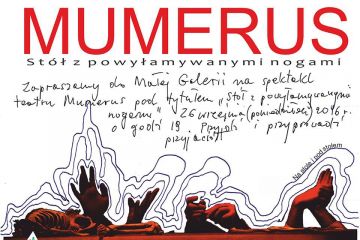 MUMERUS
Stół z powyłamywanymi nogami
Zapraszamy do Małej Galerii na spektakl
teatru Mumerus pod tytułem „Stół z powyłamywanymi
nogami" 26 września (poniedziałek) 2016 r.
o godz 19 Przyjdź i przyprowadź
przyjaciół
Na stole i pod stołem